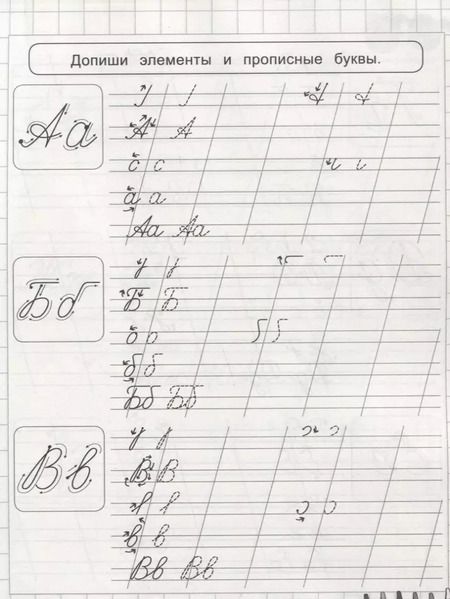 Допиши элементы и прописные буквы.
Аа
А А
с с
а а
Аа Аа
Бб
Б Б
о о
б б
б б
Бб Бб
Вв
В В
в в
Вв Вв